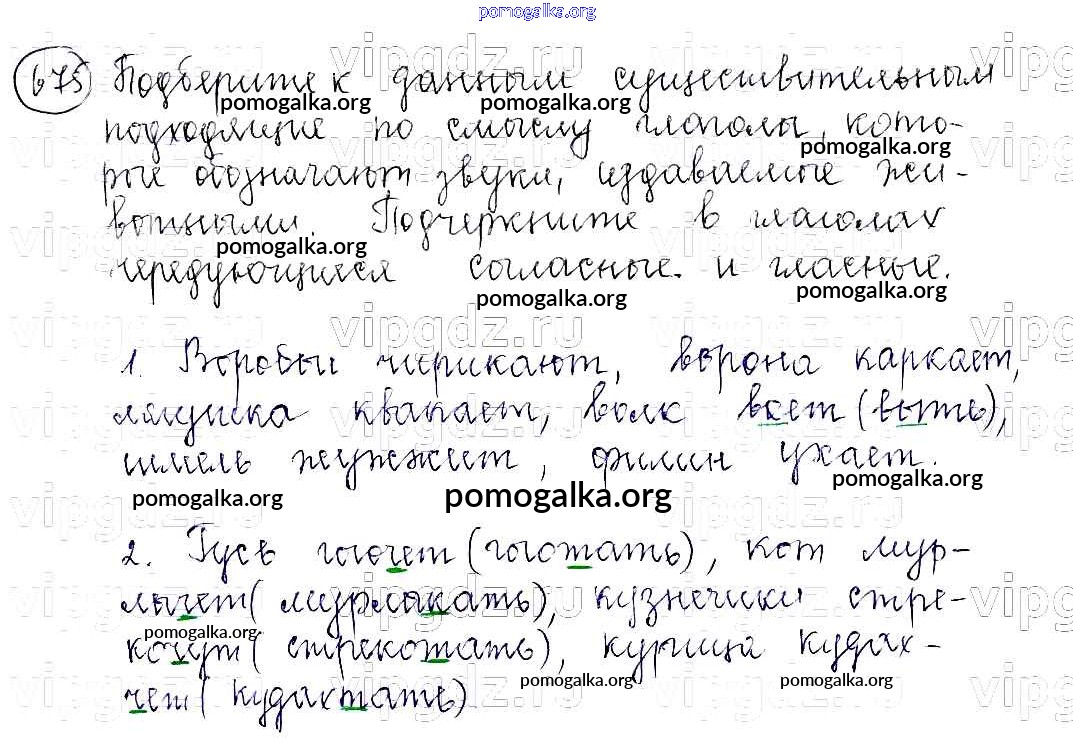 pomogalka.org
675 Подберите к данным существительным
pomogalka.org pomogalka.org
подходящие по смыслу глаголы, кото-
pomogalka.org
рые обозначают звуки, издаваемые жи-
вотными. Подчеркните в глаголах
pomogalka.org
чередующиеся согласные и гласные.
pomogalka.org pomogalka.org
vipgdz.ru vipgdz.ru vipgdz.ru
1. Воробьи чирикают, ворона каркает,
лягушка квакает, волк воет (выть),
шмель жужжит, филин ухает.
pomogalka.org pomogalka.org pomogalka.org
2. Гусь гогочет (гоготать), кот мур-
лычет (мурлыкать), кузнечики стре-
pomogalka.org
кочут (стрекотать), курица кудах-
pomogalka.org pomogalka.org
чет (кудахтать)